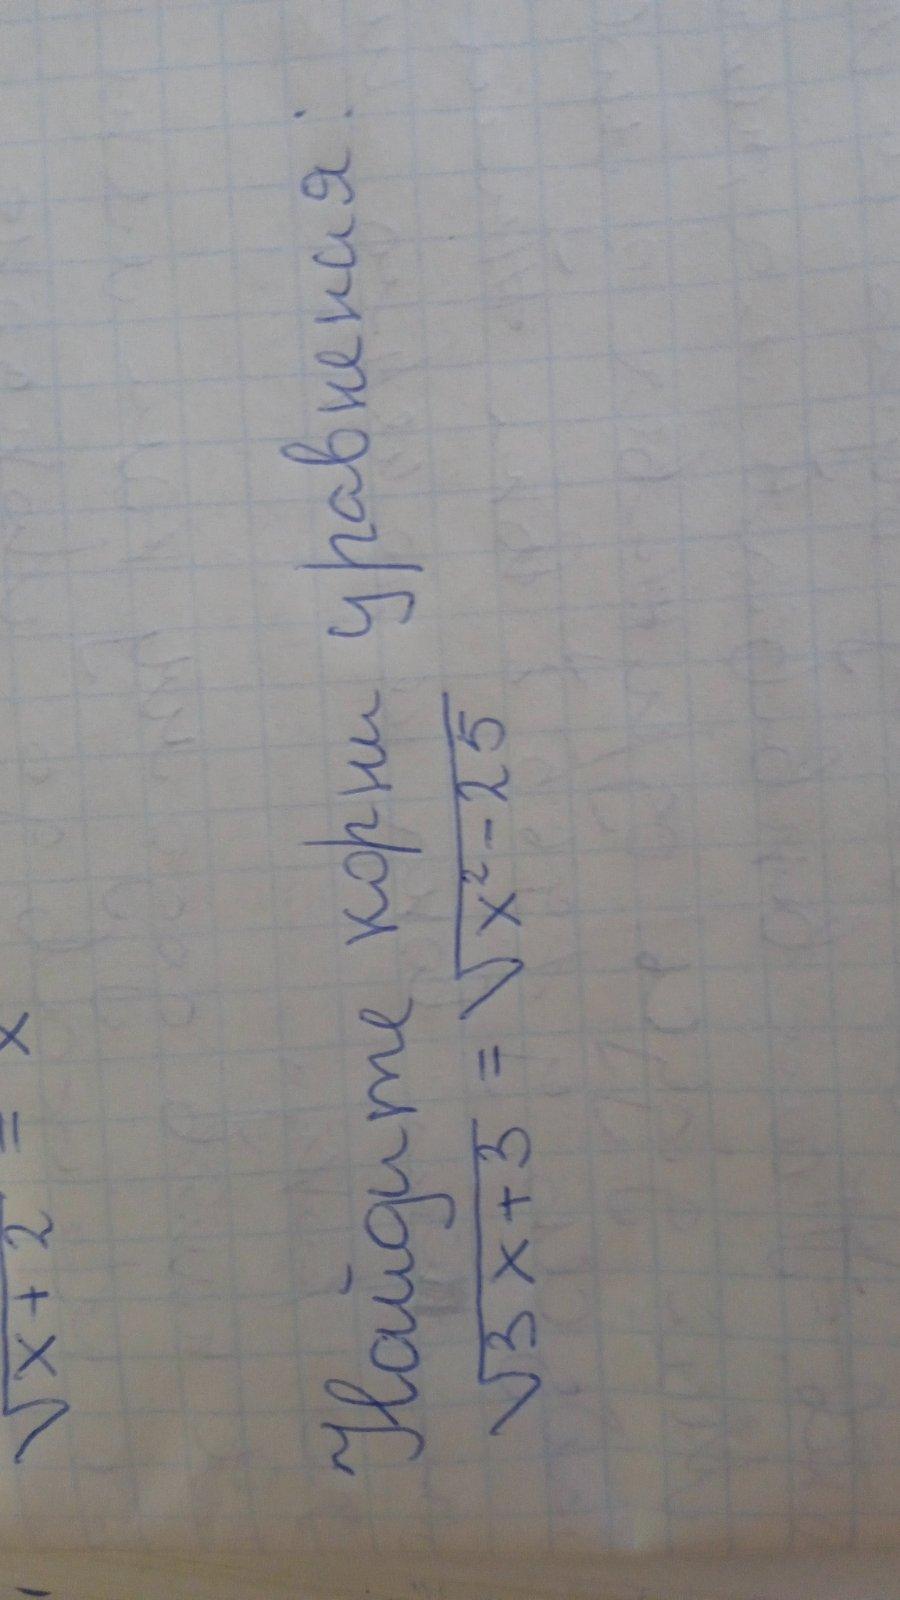 √x+2 = x
Найдите корни уравнения:
√3x+3 = √x²-25